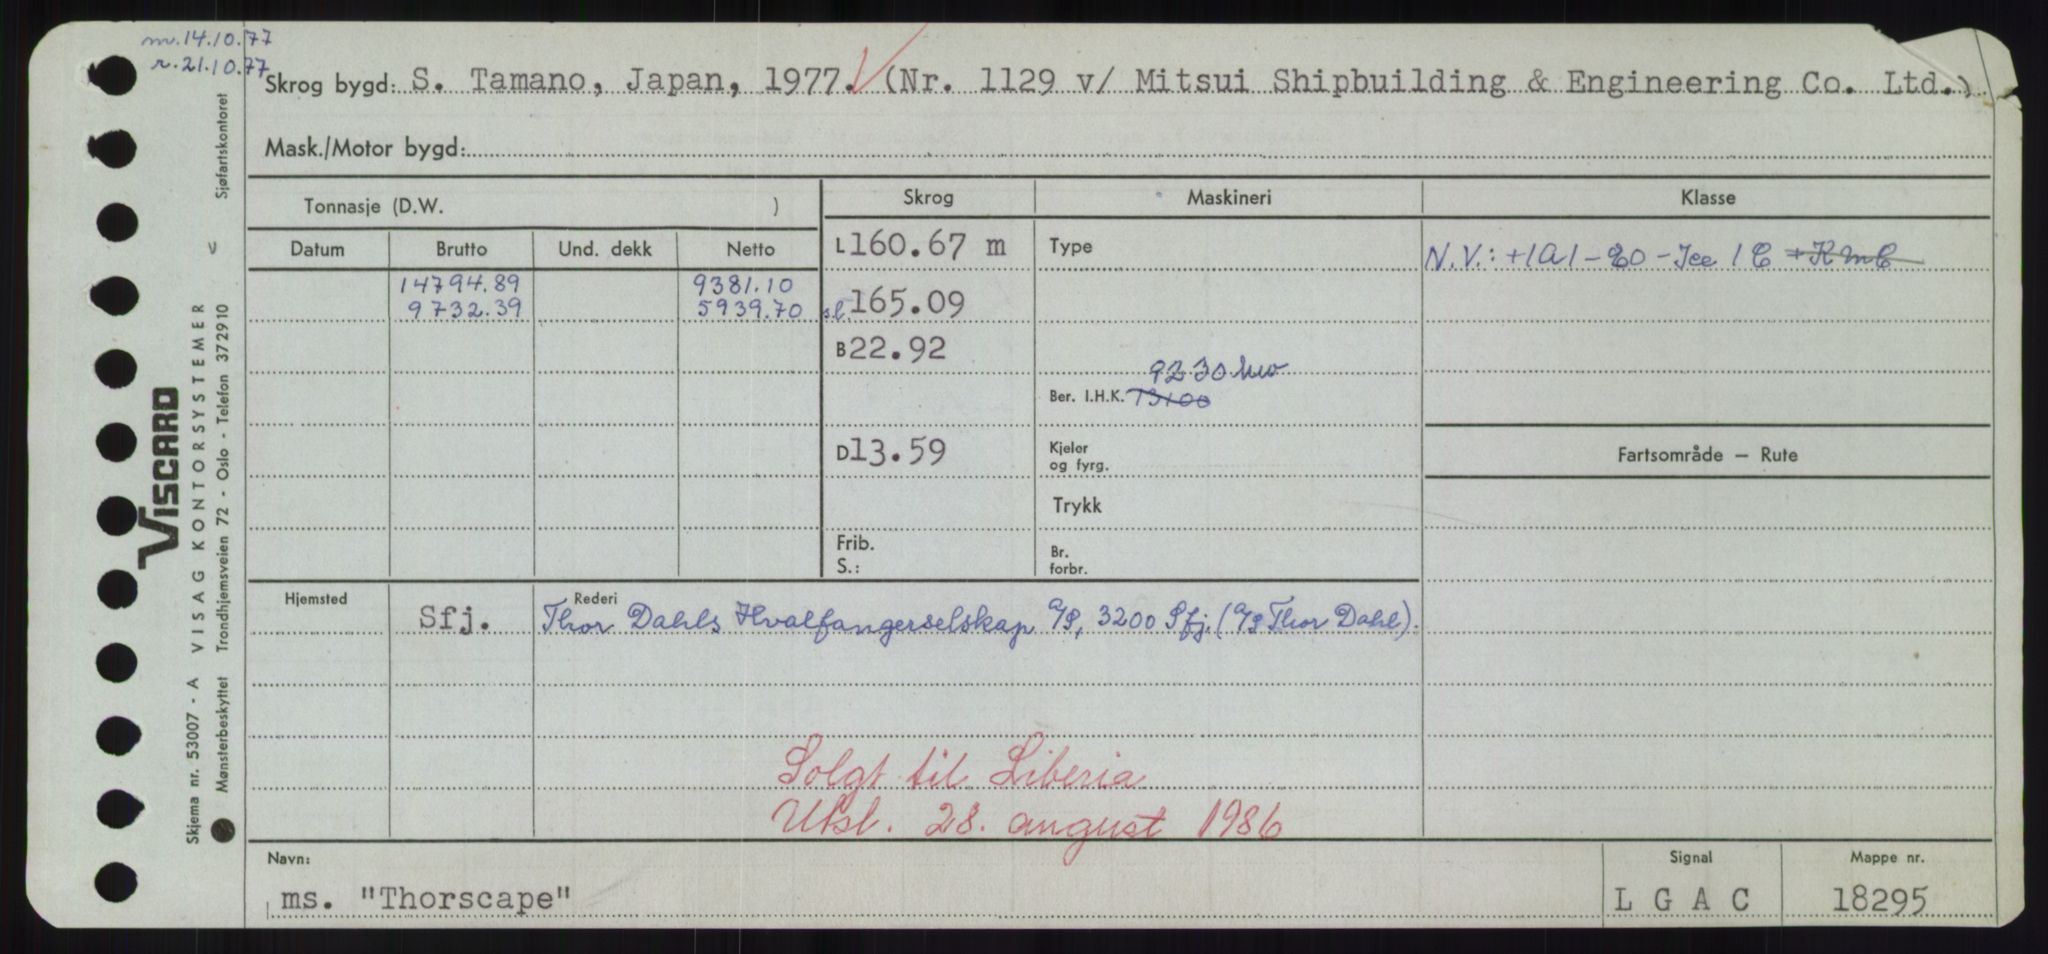 m. 14.10.77
r. 21.10.77
Skrog bygd: S. Tamano, Japan, 1977. (Nr. 1129 v/ Mitsui Shipbuilding & Engineering Co. Ltd.)
Mask./Motor bygd:
Tonnasje (D.W. )
Skrog
Maskineri
Klasse
Datum
Brutto
Und. dekk
Netto
L 160.67 m
Type
N.V.: +1A1-E0-Ice 1C +KMC
14794.89
9381.10
9732.39
5939.70
s.l. 165.09
B 22.92
9230 kw
Ber. I.H.K. 13100
D 13.59
Kjeler
og fyrg.
Fartsområde — Rute
Trykk
Frib.
S.:
Br.
forbr.
Hjemsted
Sfj.
Rederi
Thor Dahls Hvalfangerselskap A/S, 3200 Sfj. (A/S Thor Dahl).
Solgt til Liberia
Utsl. 28. august 1986
Navn:
ms. "Thorscape"
Signal
L G A C
Mappe nr.
18295
Skjema nr. 53007 - A VISAG KONTORSYSTEMER
Mønsterbeskyttet Trondhjemsveien 72 - Oslo - Telefon 372910
Sjøfartskontoret
VISCARD